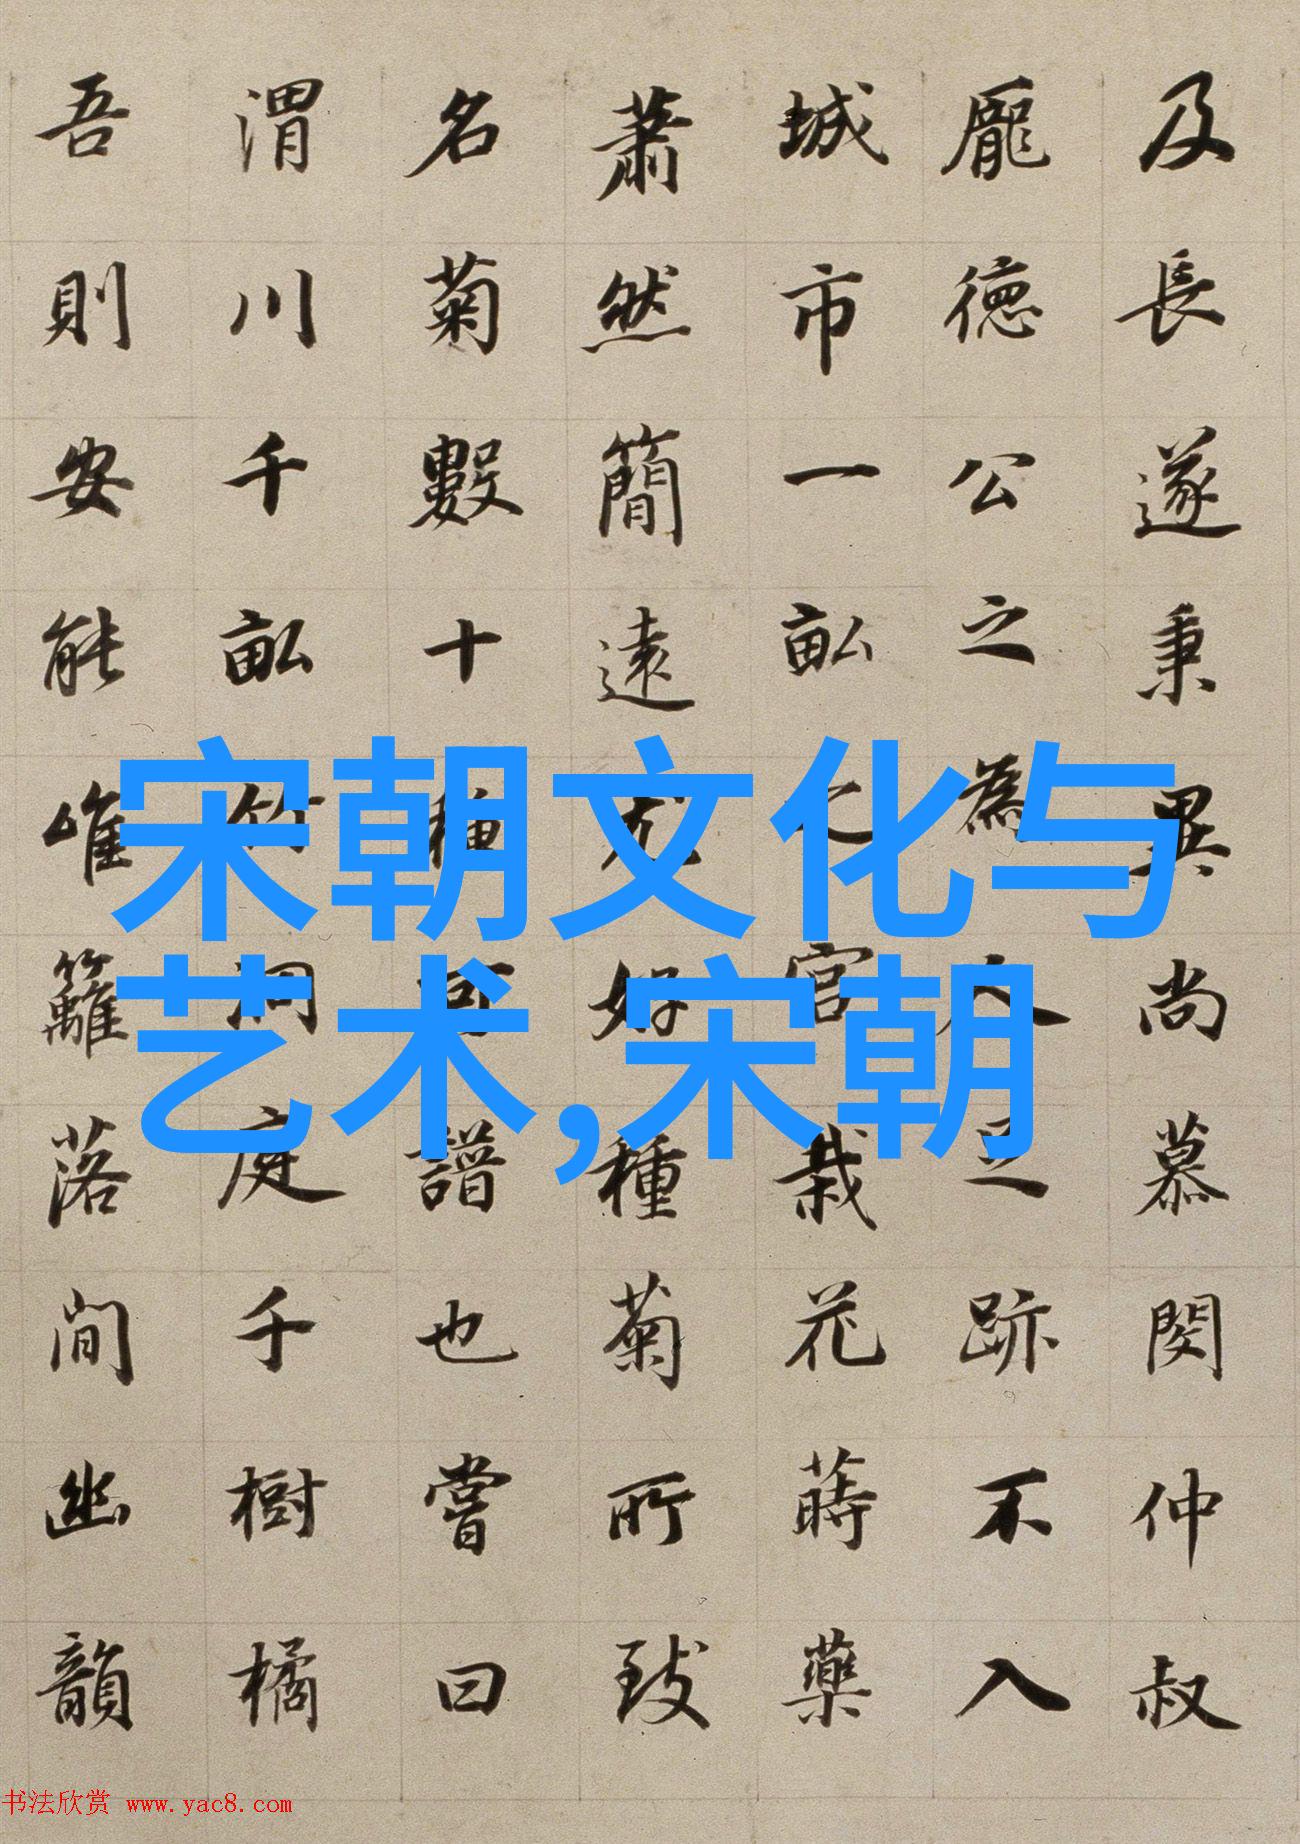 及長遂秉異尚慕閔仲叔
龐德公之為人足跡不入
城市一畝之宮栽花蒔藥
蕭然簡遠尤好種菊所致
名菊數十種可譜也嘗曰
渭川千畝竹洞庭千樹橘
吾則安能唯籬落間幽韻
宋朝文化与
艺术,宋朝
书法欣赏 www.yac8.com